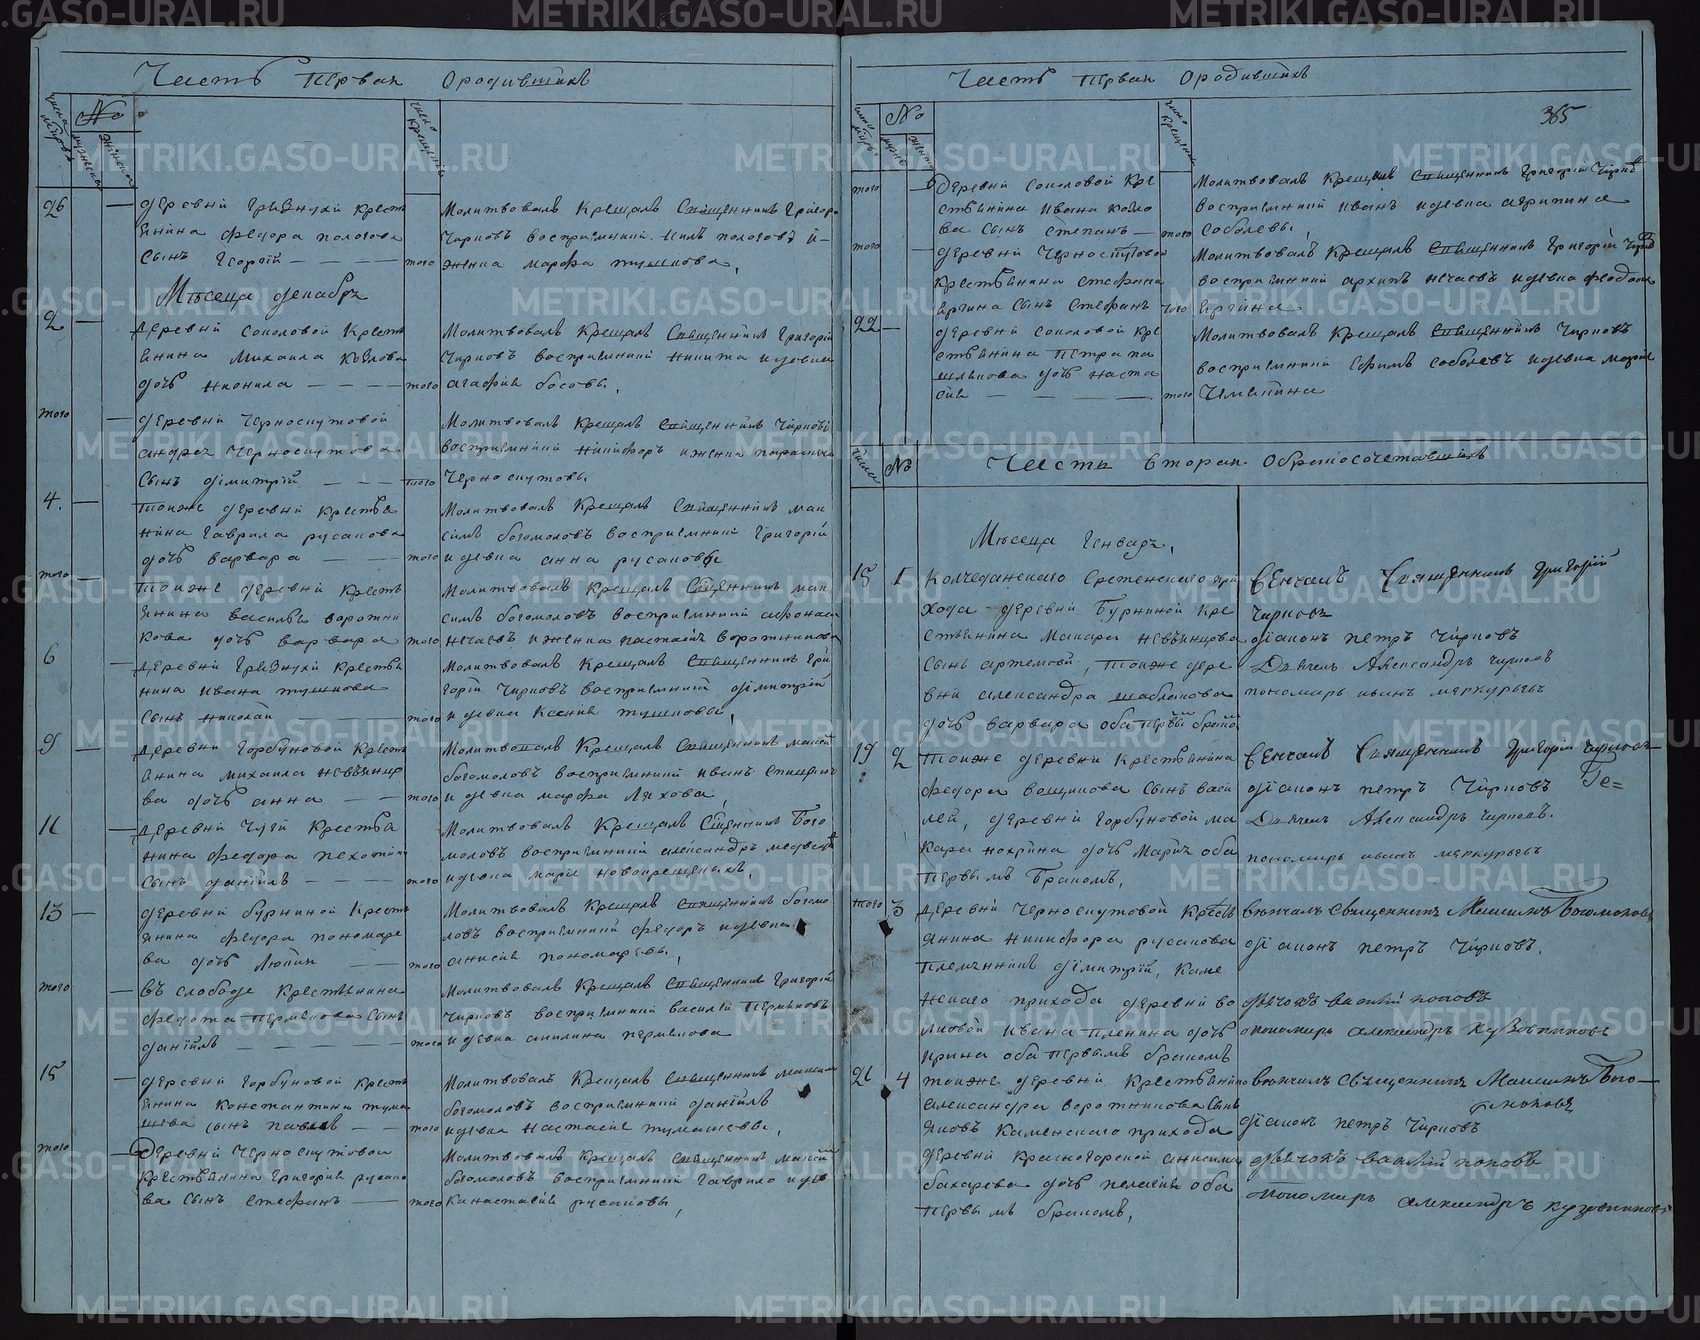 Часть первая о родившихся
числа
No
мужеска
женска
число крещенія
26
деревни Грязнухи крестьянина Федора Пологова
сынъ Георгій — — — — того
Молитвовалъ крещалъ Священникъ Григорій
Чирковъ воспріемники Нилъ Пологовъ и
женка Марфа Тушкова,
Месеца декабря
2
деревни Соколовой кресть
янина Михаила Козлова
дочь Нионила — — — того
Молитвовалъ крещалъ Священникъ Григорій
Чирковъ воспріемники Никита и девка
Агафия Босовы,
того
деревни Черноскутовой
Андрея Черноскутова
сынъ Дімитрій — — — того
Молитвовалъ крещалъ Священникъ Чирковъ
воспріемники Никифоръ и женка
Черноскутовы
4.
тояже деревни крестья
нина Гаврила Русакова
дочь Варвара — — того
Молитвовалъ крещалъ Священникъ Мак
симъ Богомоловъ воспріемники Григорій
и девка Анна Русаковы
того
тояже деревни кресть
янина Василья Воротни
кова дочь Варвара — того
Молитвовалъ крещалъ Священникъ Мак
симъ Богомоловъ воспріемники Афонасей
Нечаевъ и женка Настасия Воротникова
6
деревни Грязнухи крестья
нина Ивана Тушкова
сынъ Николай — — — того
Молитвовалъ крещалъ Священникъ Гри
горій Чирковъ воспріемники Дімитрій
и девка Ксения Тушковы,
9
деревни Горбуновой кресть
янина Михаила Невьянцо
ва дочь Анна — — того
Молитвовалъ крещалъ Священникъ Максимъ
Богомоловъ воспріемники Иванъ
и девка Марфа Ляхова,
11
деревни Чуги крестья
нина Федора Пехотина
сынъ Даніилъ — — — того
Молитвовалъ крещалъ Священникъ Бого
моловъ воспріемники Александръ Медведевъ
и девка Мария Новокрещеныхъ,
13
деревни Бурниной кресть
янина Федора Пономаре
ва дочь — — того
Молитвовалъ крещалъ Священникъ Богомо
ловъ воспріемники Федоръ и девка
Анисия Пономаревы,
того
въ слободе крестьянина
Федота Пермякова сынъ
Даніилъ — — — — того
Молитвовалъ крещалъ Священникъ Григорій
Чирковъ воспріемники Василей Пермяковъ
и девка Акилина Пермякова
15
деревни Горбуновой кресть
янина Константина Тума
шева сынъ Павелъ — — того
Молитвовалъ крещалъ Священникъ Максимъ
Богомоловъ воспріемники Даніилъ
и девка Настасия Тумашевы,
того
Деревни Черноскутовой
крестьянина Григорія Русако
ва сынъ Стефанъ — — того
Молитвовалъ крещалъ Священникъ Максимъ
Богомоловъ воспріемники Гаврило и дев
ка Настасия Русаковы,
Часть первая о родившихся
365
No
того
деревни Соколовой кре
стьянина Ивана Козло
ва сынъ Степанъ — того
Молитвовалъ крещалъ Священникъ Григорій Чирковъ
воспріемники Иванъ и девка Агрипина
Соболевы,
того
деревни Черноскутовой
крестьянина Стефана
Ергина сынъ Стефанъ того
Молитвовалъ крещалъ Священникъ Григорій Чирковъ
воспріемники Архипъ Нечаевъ и девка Феодосия
Ергина
22
деревни Соколовой кре
стьянина Петра Па
шлякова дочь Наста
сия — — — — того
Молитвовалъ крещалъ Священникъ Чирковъ
воспріемники Ефимъ Соболевъ и девка Мария
числа
No
Часть вторая о бракосочетавшихъ
Месеца Генваря,
15 1
Колчеданскаго Сретенскаго при
хода деревни Бурниной кре
стьянина Макара Невьянцова
сынъ Артемой, тояже дере
вни Александра Шаблакова
дочь Варвара оба первымъ бракомъ
Венчалъ Священникъ Григорій
Чирковъ
діаконъ Петръ Чирковъ
Дьячекъ Александръ Чирковъ
пономарь Иванъ Меркурьевъ
19 2
тояже деревни крестьянина
Федора Вощикова сынъ Васи
лей, деревни Горбуновой Ма
кара Нохрина дочь Мария оба
первымъ бракомъ,
Венчалъ Священникъ Григорій Чирковъ
діаконъ Петръ Чирковъ
Ге=
Дьячекъ Александръ Чирковъ.
пономарь Иванъ Меркурьевъ
того 3
деревни Черноскутовой кресть
янина Никифора Русакова
племянникъ Дімитрій, Каме
нскаго прихода деревни Во
лковой Ивана Пленина дочь
Ирина оба первымъ бракомъ
венчалъ Священникъ Максимъ Богомоловъ
діаконъ Петръ Чирковъ,
дьячокъ Василій Поповъ
пономарь Александръ Кузовниковъ
21 4
тояже деревни крестьянина
Александра Воротникова сынъ
Яковъ Каменскаго прихода
деревни Красногорской Анисима
Бахарева дочь Пелагия оба
первымъ бракомъ,
венчалъ Священникъ Максимъ Бого—
моловъ
діаконъ Петръ Чирковъ
дьячокъ Василій Поповъ
пономарь Александръ Кузовниковъ
METRIKI.GASO-URAL.RU